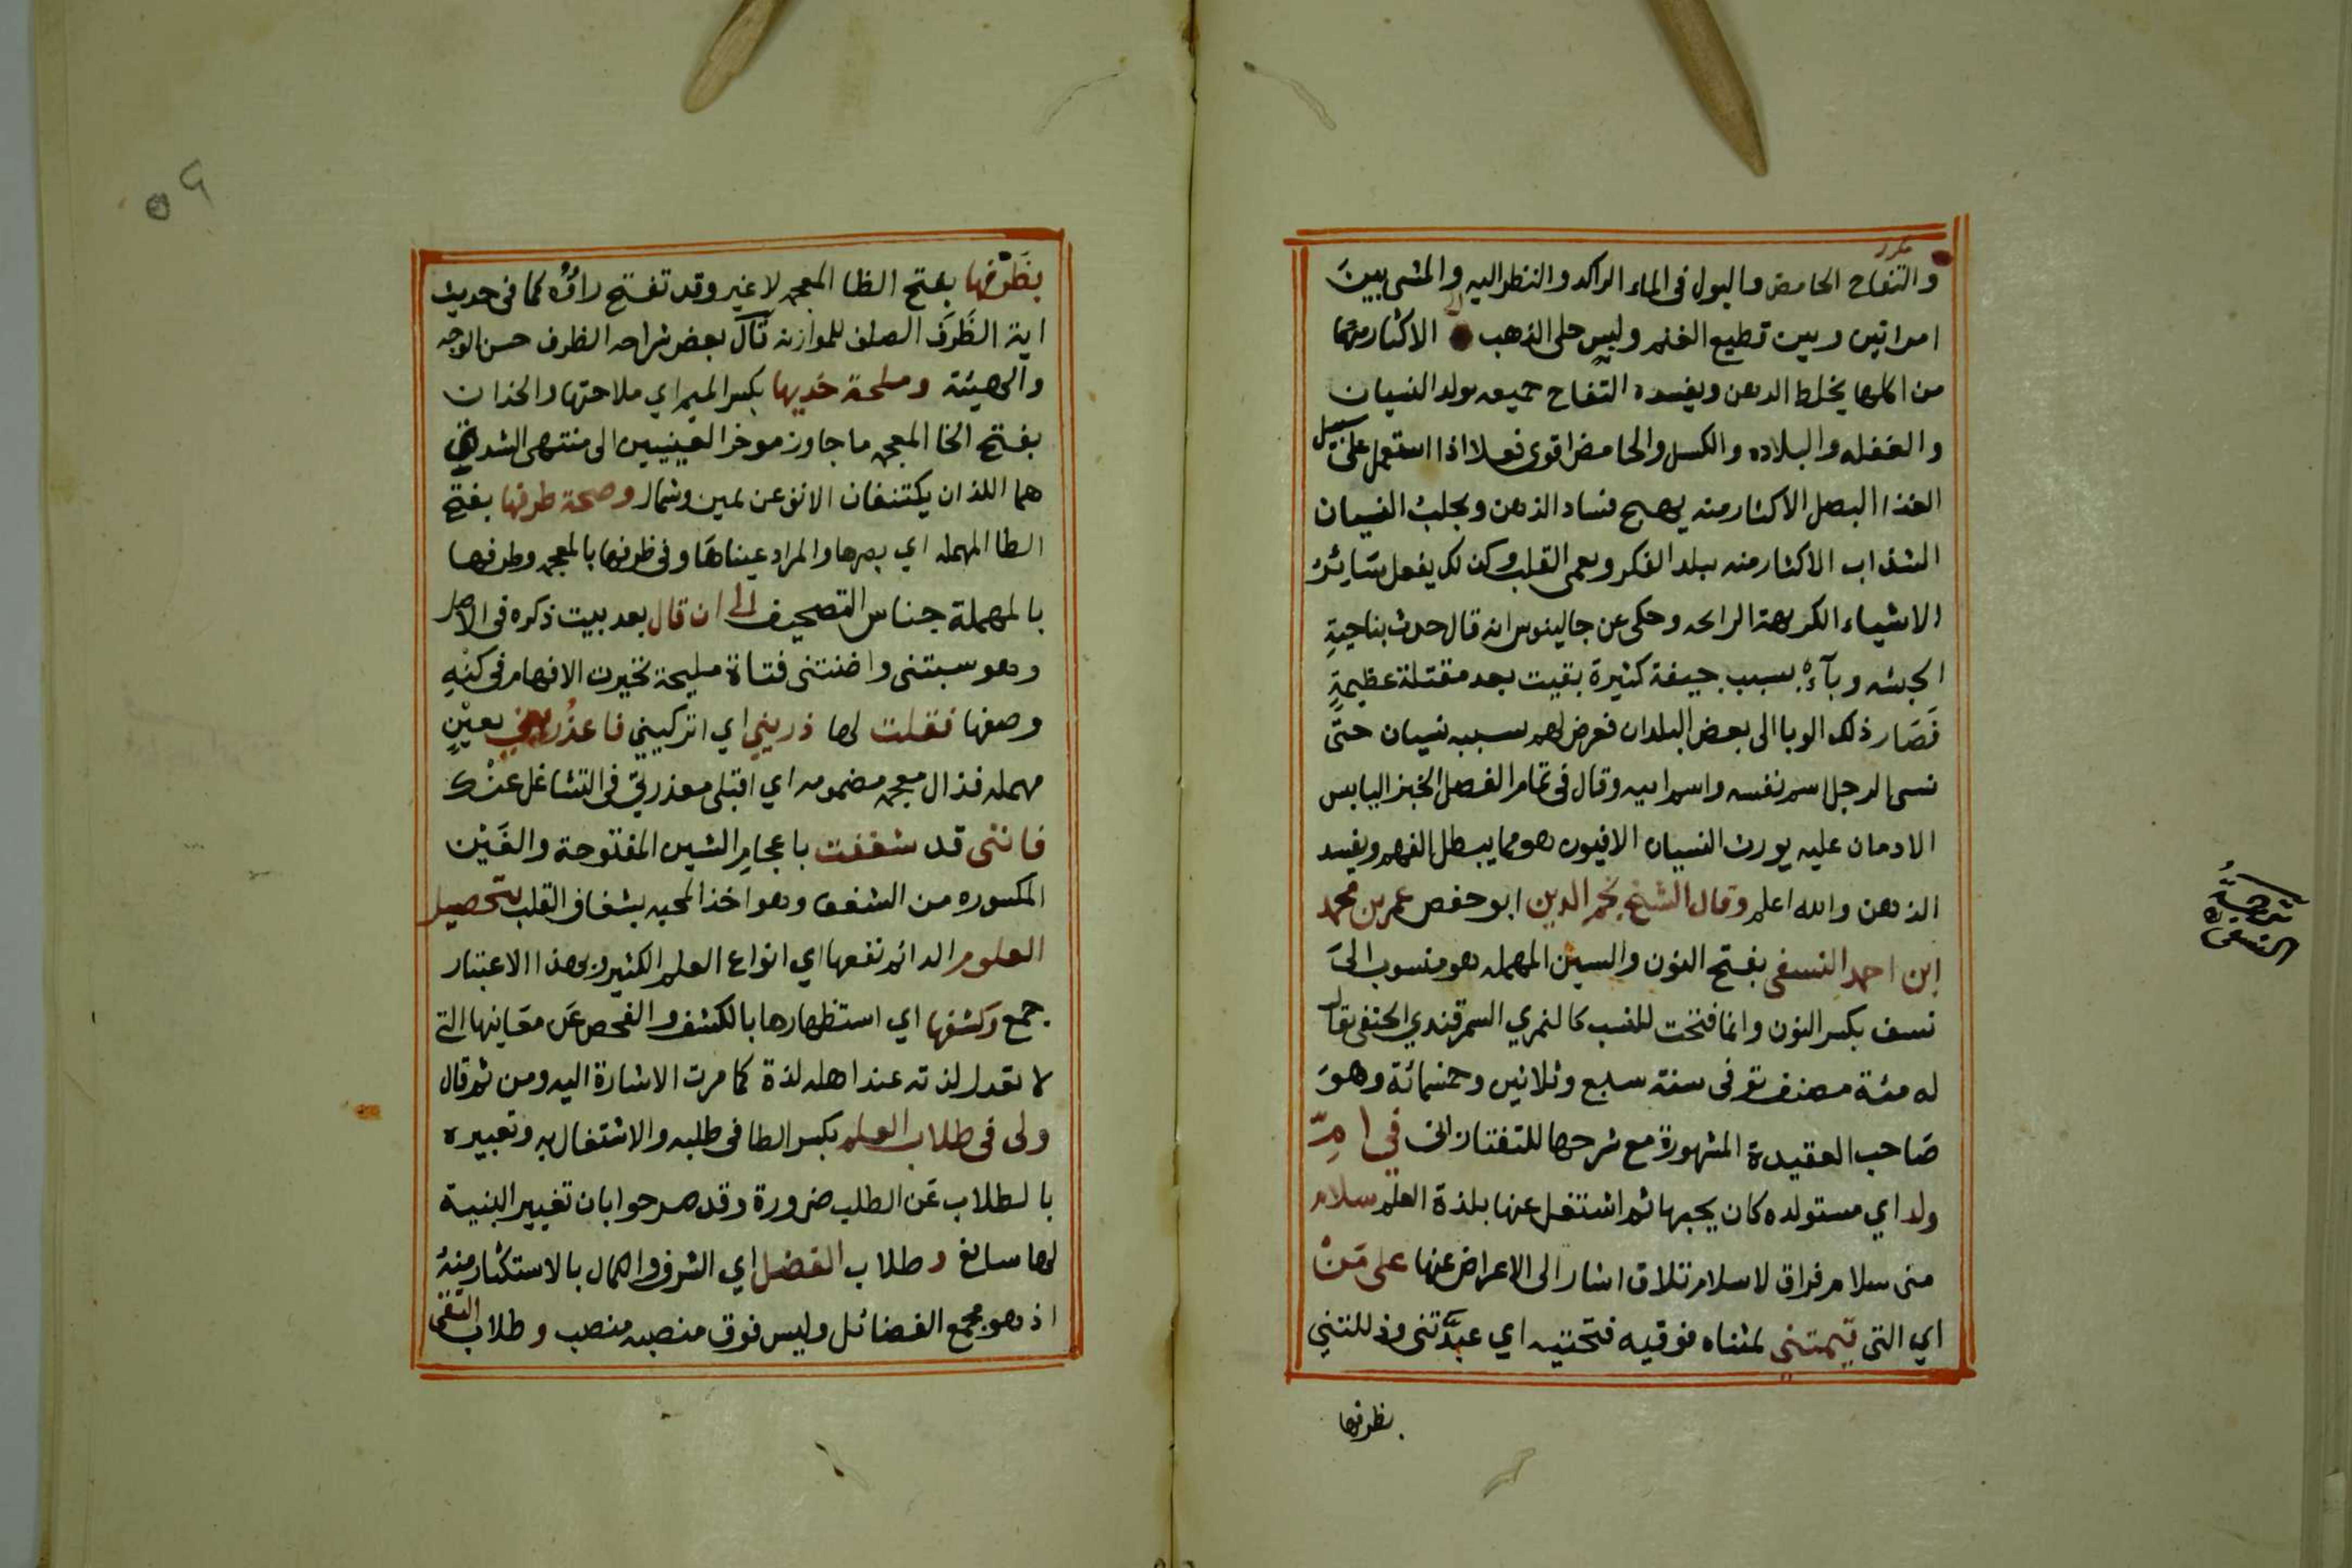 مكرر
والتفاح الحامض والبول في الماء الراكد والنظر اليه والمشي بينَ
امراتين وبين قطيع الغنم ولبس حلى الذهب الاكثار منها
من اكلها يخلط الدهن ويفسده التفاح جميعه يولد النسيان
والغفله والبلاده والكسل والحامض اقوى فعلا اذا استعمل على سبيل
الغذا البصل الاكثار منه يهيج فساد الذهن ويجلب النسيان
الشذاب الاكثار منه يبلد الفكر ويعمى القلب وكذلك يفعل سَايُر
الاشياء الكريهة الرايحه وحكى عن جالينوس انه قال حدث بناحيةِ
الحبشه وبآءٌ بسبب جيفة كثيرة بقيت بعد مقتلة عظيمةٍ
فَصَار ذلك الوبا الى بعض البلدان فعرض لهم بسببه نسيان حتَّى
نسى الرجل اسم نفسه واسم ابيه وقال في تمام الفصل الخبز اليابس
الادمان عليه يورث النسيان الافيون هو مما يبطل الفهم ويفسد
الذهن والله اعلم وقال الشيخ نجم الدين ابو حفص عمر بن محمد
ابن احمد النسفى بفتح النون والسين المهمله هو منسوب الىَ
نسف بكسر النون وانما فتحت للنسب كالنمري السمرقندي الحنفى يقال
له مئة مصنف توفى سنة سبع وثلاثين وخمسمائة وهوَ
صَاحب العقيدة المشهورة مع شرحها للتفتازانى في امِّ
ولد اي مستولده كان يحبها ثم اشتغل عنها بلذة العلم سلام
منى سلام فراق لا سلام تلاق اشار الى الاعراض عنها على مَنْ
اي التى تيمتنى لمثناه فوقيه فتحتيه اي عبَّدتنى وذللتنِي
بظرفها
ترجمة
النسفى
٥٩
بظَرْفها بفتح الظا المعجمه لا غير وقد تفتح راؤه كما في حديث
اية الظَّرَفَ الصلف للموازنه قال بعض شراحه الظرف حسن الوجه
والهيئة وملحة خديها بكسر الميم اي ملاحتها والخدان
بفتح الخا المعجمه ما جاوز موخر العينيين الى منتهى الشدق
هما اللذان يكتنفان الانف عن يمين وشمال وصحة طرفها بفتح
الطا المهمله اي بصرها والمراد عيناهَا وفى ظرفها بالمعجمه وطرفها
بالمهملة جناس التصحيف الى ان قال بعد بيت ذكره في الاصل
وهو سبتنى واضنتنى فتاة مليحة تحيرت الافهام في كنْهِ
وصفها فقلت لها ذريني اي اتركيني فاعذُريني بعينٍ
مهمله فذال معجمه مضمومه اي اقبلى معذرتي في التشاغل عنْك
فاننى قد شغفت باعجامِ الشين المفتوحة والغَيْن
المكسوره من الشغف وهو اخذ المحبه بشغاف القلب بتحصيل
العلوم الدائم نفعها اي انواع العلم الكثير وبهذا الاعتبار
جمع وكشفها اي استظهارها بالكشف والفحص عَن معَانيها التى
لا تعدل لذته عند اهله لذة كما مرت الاشارة اليه ومن ثم قال
ولى فى طلاب العلم بكسر الطا فى طلبه والاشتغال به وتعبيره
بالطلاب عَن الطلب ضرورة وقد صرحوا بان تغيير البنية
لها سائغ وطلاب الفضل اي الشرف والكمال بالاستكثار منهُ
اذ هو مجمع الفضائل وليس فوق منصبه منصب وطلاب التقى